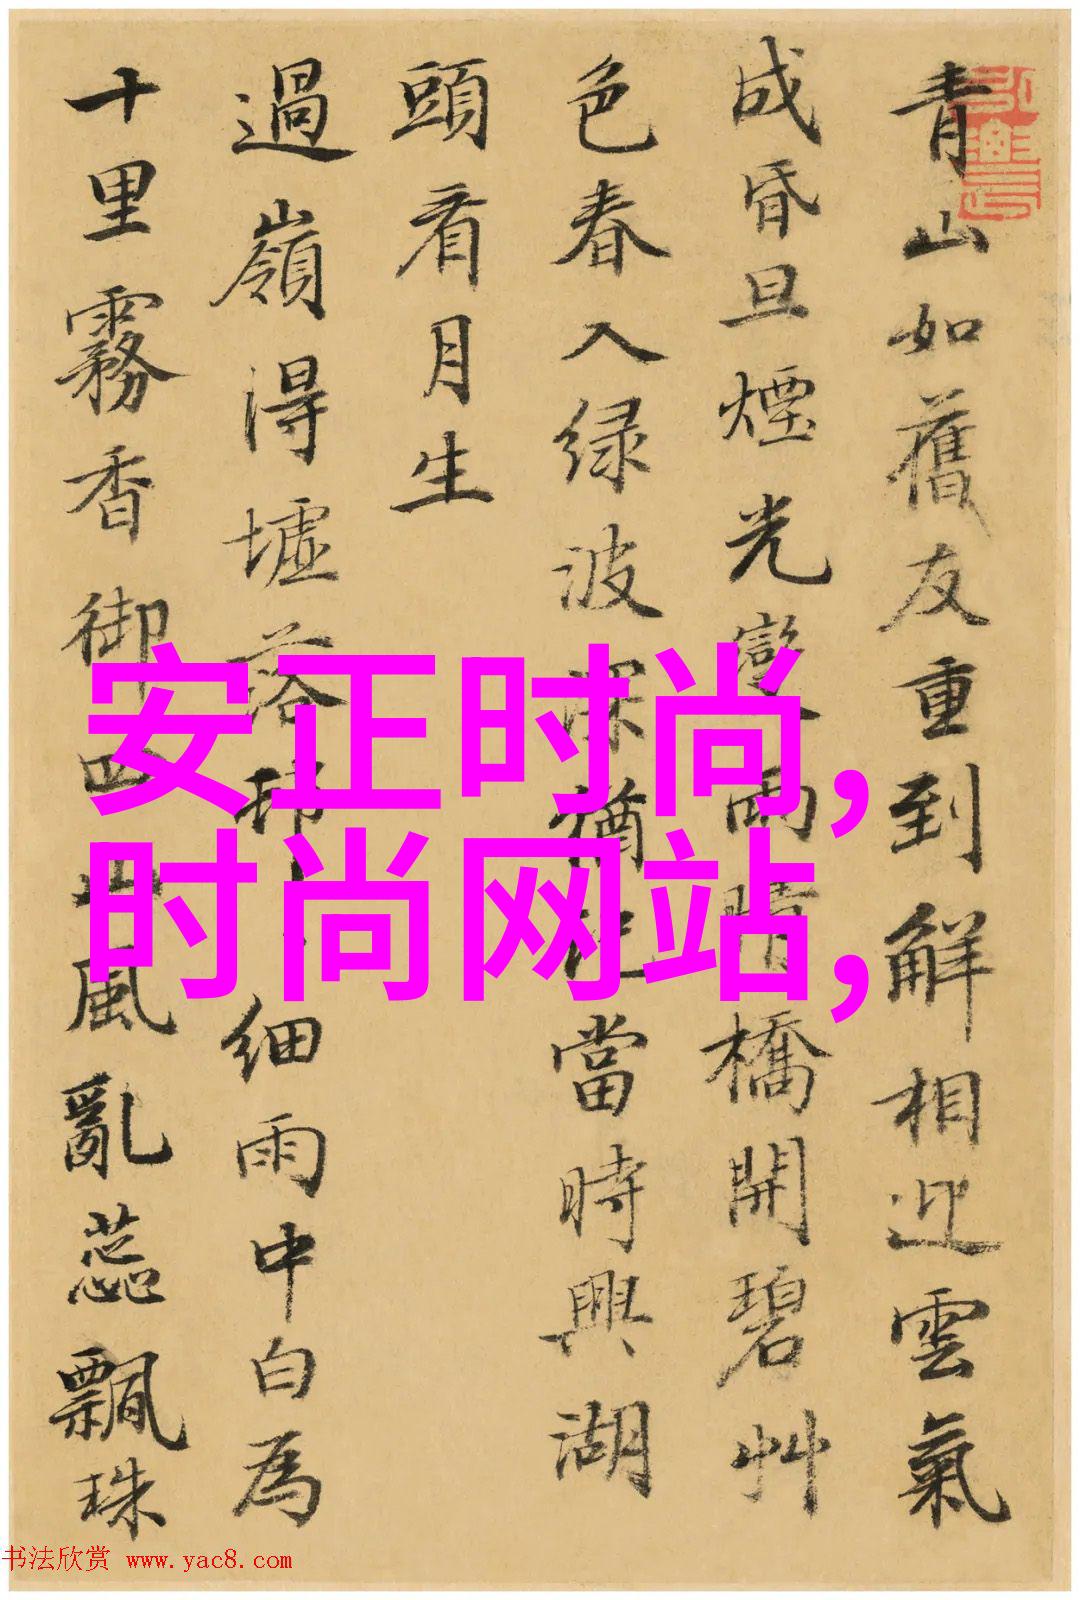 青山如舊友重到解相迎雲氣
成昏旦煙光變雨晴橋開碧艸
色春入绿波深猶當時興湖
頭看月生
過嶺得墟落邨細雨中白為
十里霧香御四山風亂蕊飄珠
安正时尚,
时尚网站,
书法欣赏 www.yac8.com